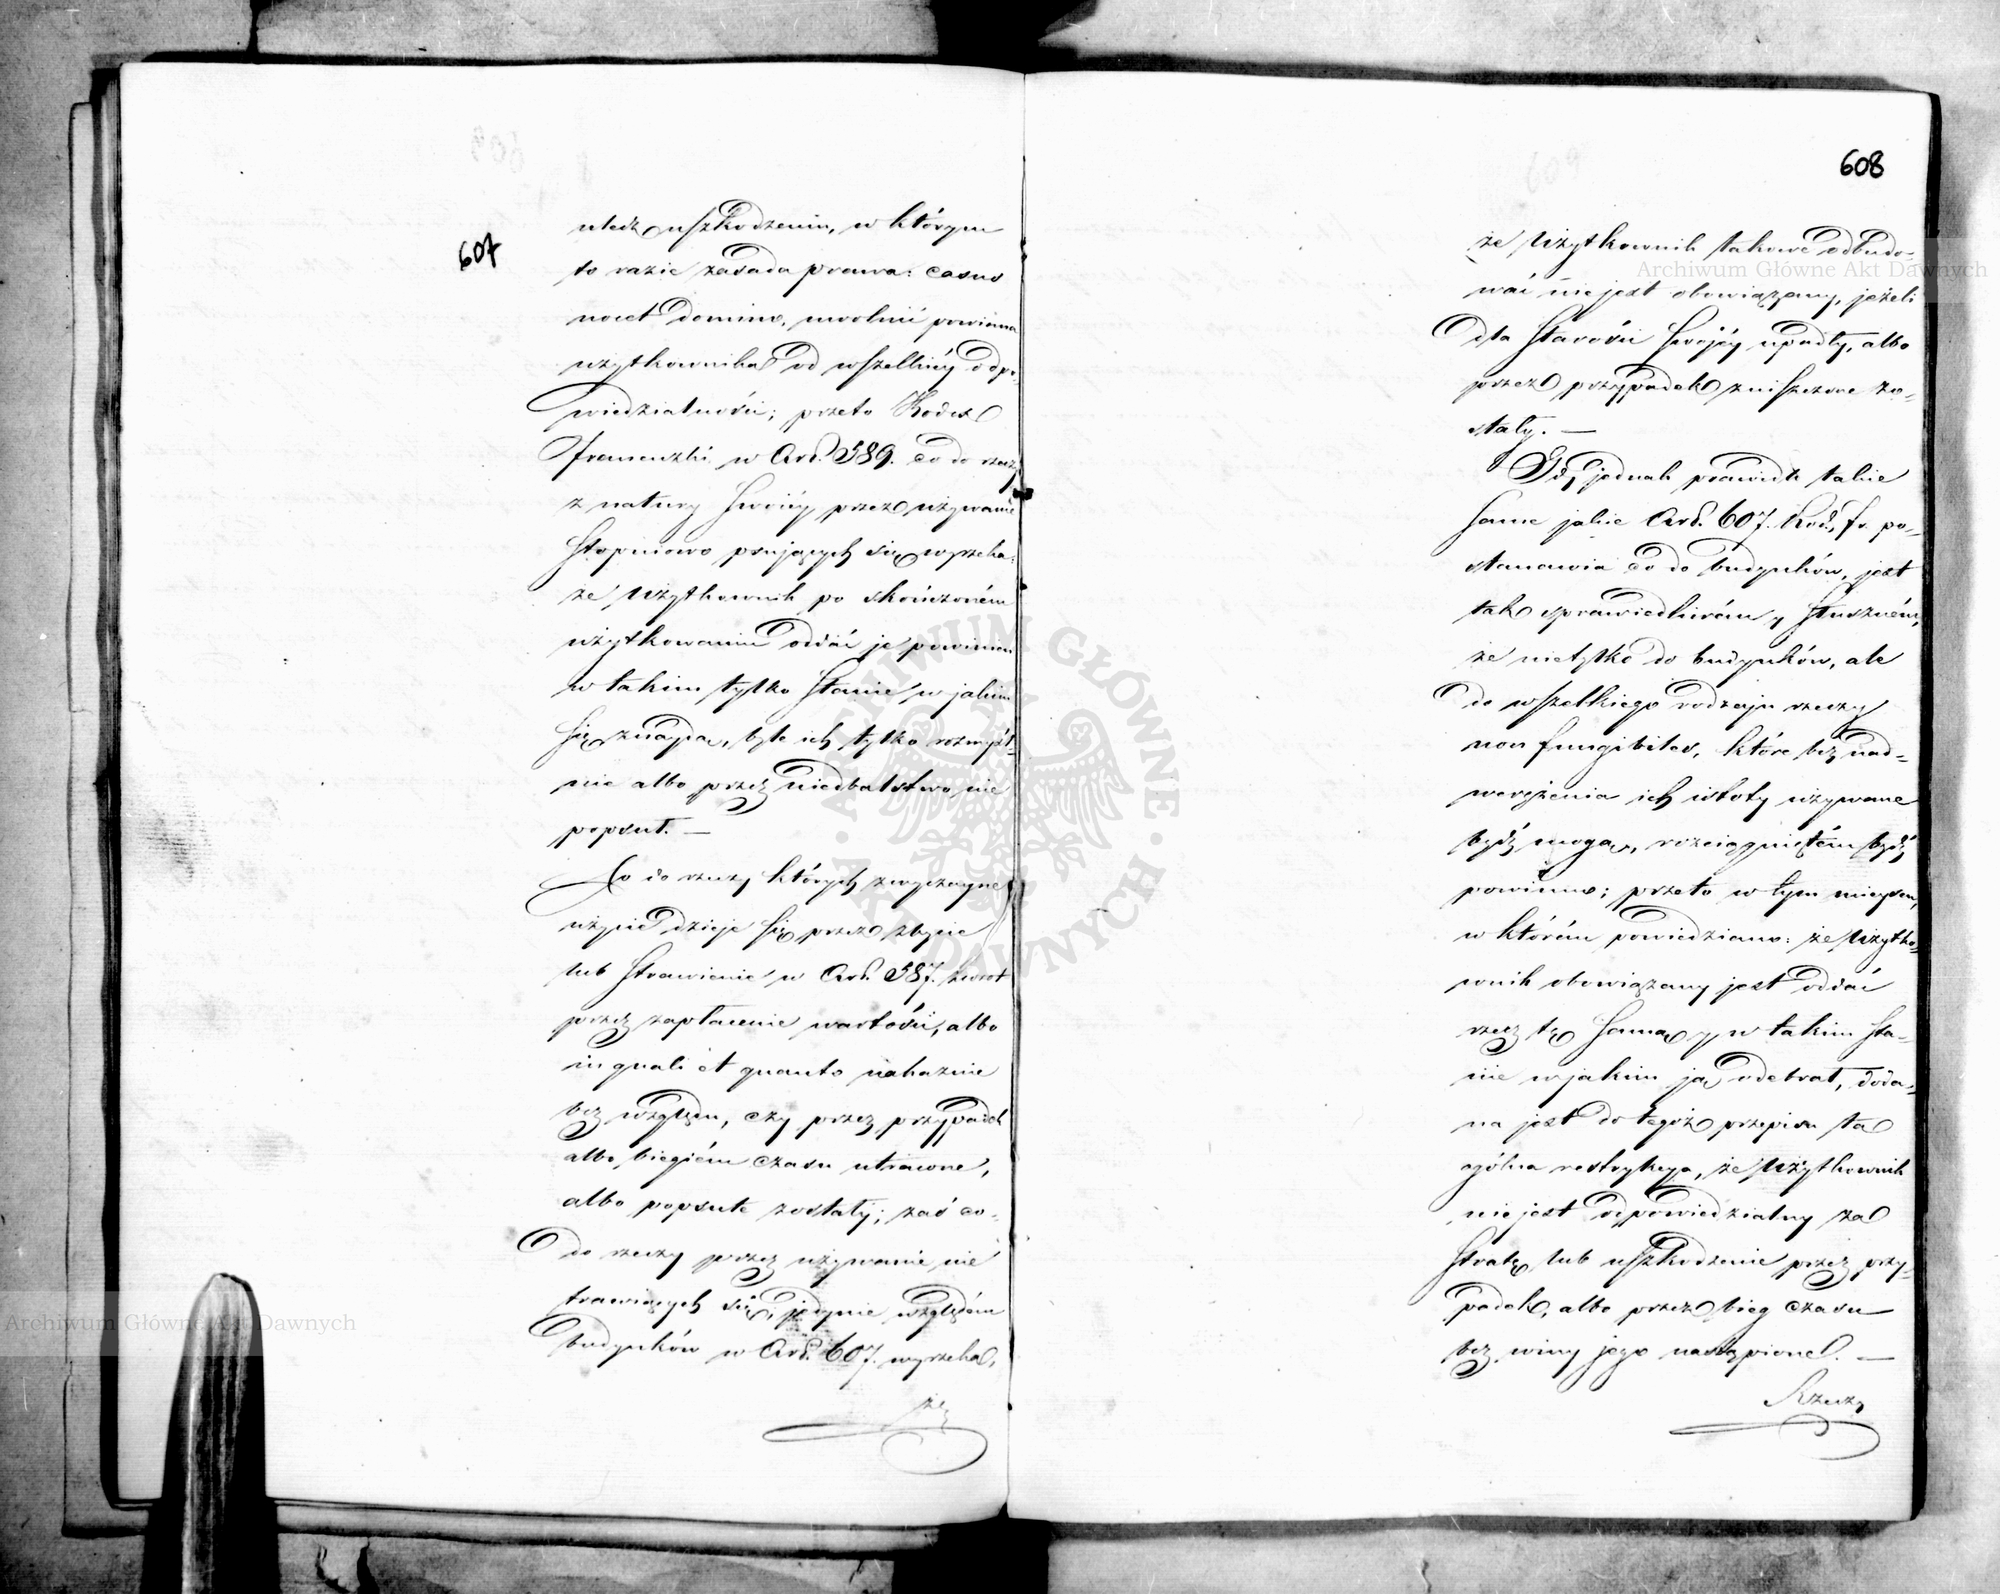 607
uledz uszkodzeniu, w którym
to razie zasada prawa: casus
nocet domino, uwolnić powinna
użytkownika od wszelkiéy odpo-
wiedzialności; przeto Kodex
francuzki w Art. 589. co do rzeczy
z natury swoiéy przez używanie
stopniowo psujących się wyrzeka:
że Użytkownik po skończoném
użytkowaniu oddać je powinien
w takim tylko stanie w jakim
się znaydą, byle ich tylko rozmyśl-
nie albo przez niedbalstwo nie
popsuł. —
Co do rzeczy których zwyczayne
użycie dzieje się przez zbycie
lub strawienie w Art. 587. zwrot
przez zapłacenie wartości, albo
in quali et quanto nakazuie
bez względu, czy przez przypadek
albo biegiem czasu utracone,
albo popsute zostały; zaś co
do rzeczy przez używanie nie
trawiących się, jedynie względem
budynków w Art. 607. wyrzeka,
że
608
że Użytkownik takowe odbudo-
wać nie jest obowiązany, jeżeli
dla starości swojéy upadły, albo
przez przypadek zniszczone zo-
stały. —
Gdy jednak prawidło takie
same jakie Art. 607. Kod. fr. po-
stanawia co do budynków, jest
tak sprawiedliwém y słuszném,
że nietylko do budynków, ale
do wszelkiego rodzaju rzeczy
non fungibiles, które bez nad-
werężenia ich istoty używane
bydź mogą, rozciągniętém bydź
powinno; przeto w tym mieyscu,
w którém powiedziano: że Użytko-
wnik obowiązany jest oddać
rzecz tę samą y w takim sta-
nie w jakim ją odebrał, doda-
na jest do tegoż przepisu ta
ogólna restrykcya, że Użytkownik
nie jest odpowiedzialny za
stratę lub uszkodzenie przez przy-
padek, albo przez bieg czasu
bez winy jego nastąpione. —
Rzeczy
Archiwum Główne Akt Dawnych
Archiwum Główne Akt Dawnych
ARCHIWUM GŁÓWNE AKT DAWNYCH